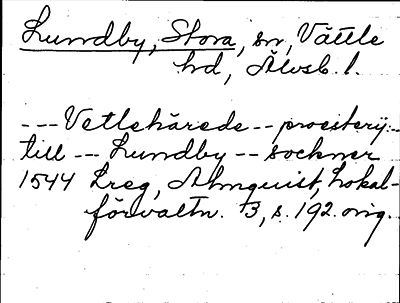 Lundby, Stora, sn, Vättle
hd, Älvsb. l.
--- Vetlehärede -- proesterij --
till --- Lundby -- sockner
1544 Lreg, Almquist, Lokal-
förvaltn. 3, s. 192. orig.